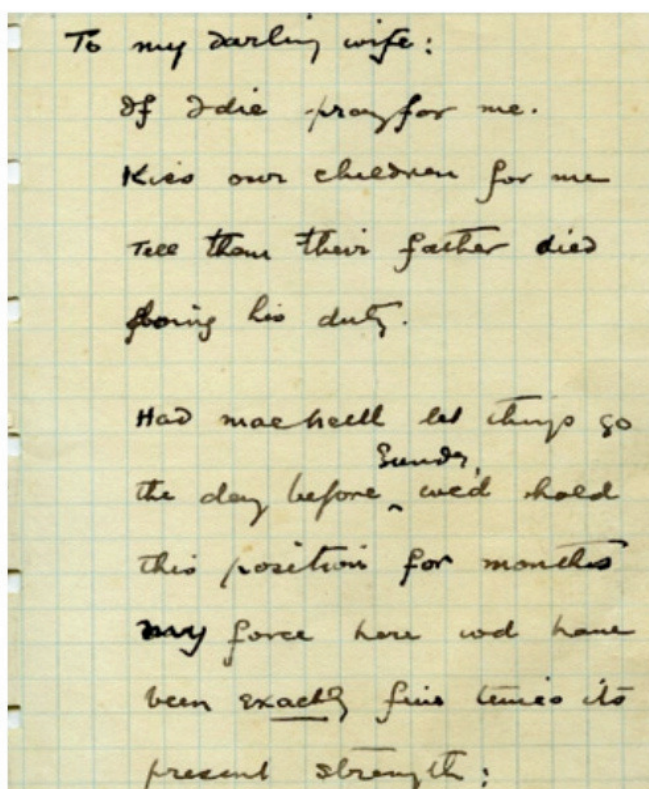 To my darling wife:
If I die pray for me.
Kiss our children for me
Tell them their father died
doing his duty.
Had MacNeill let things go
Sunday,
the day before ^ we'd hold
this position for months
my force here wd have
been exactly five times its
present strength: